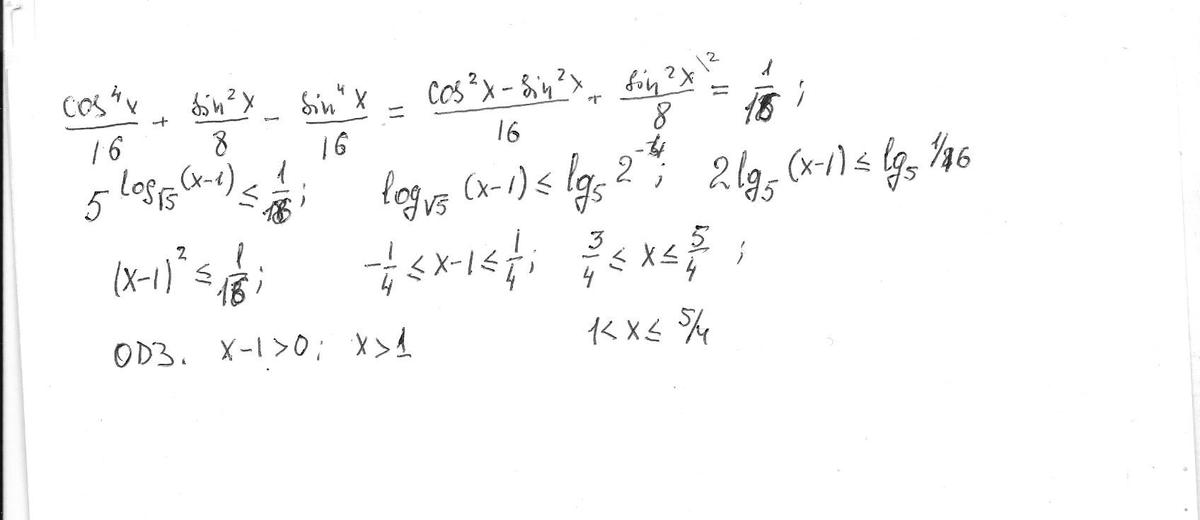 cos⁴x/16 + sin²x/8 - sin⁴x/16 = (cos²x - sin²x)/16 + sin²x\²/8 = 1/16;
5^(log_√5 (x-1)) ≤ 1/16; log_√5 (x-1) ≤ lg₅ 2⁻⁴; 2lg₅ (x-1) ≤ lg₅ 1/16
(x-1)² ≤ 1/16; -1/4 ≤ x-1 ≤ 1/4; 3/4 ≤ x ≤ 5/4;
ОДЗ. x-1>0; x>1 1< x ≤ 5/4